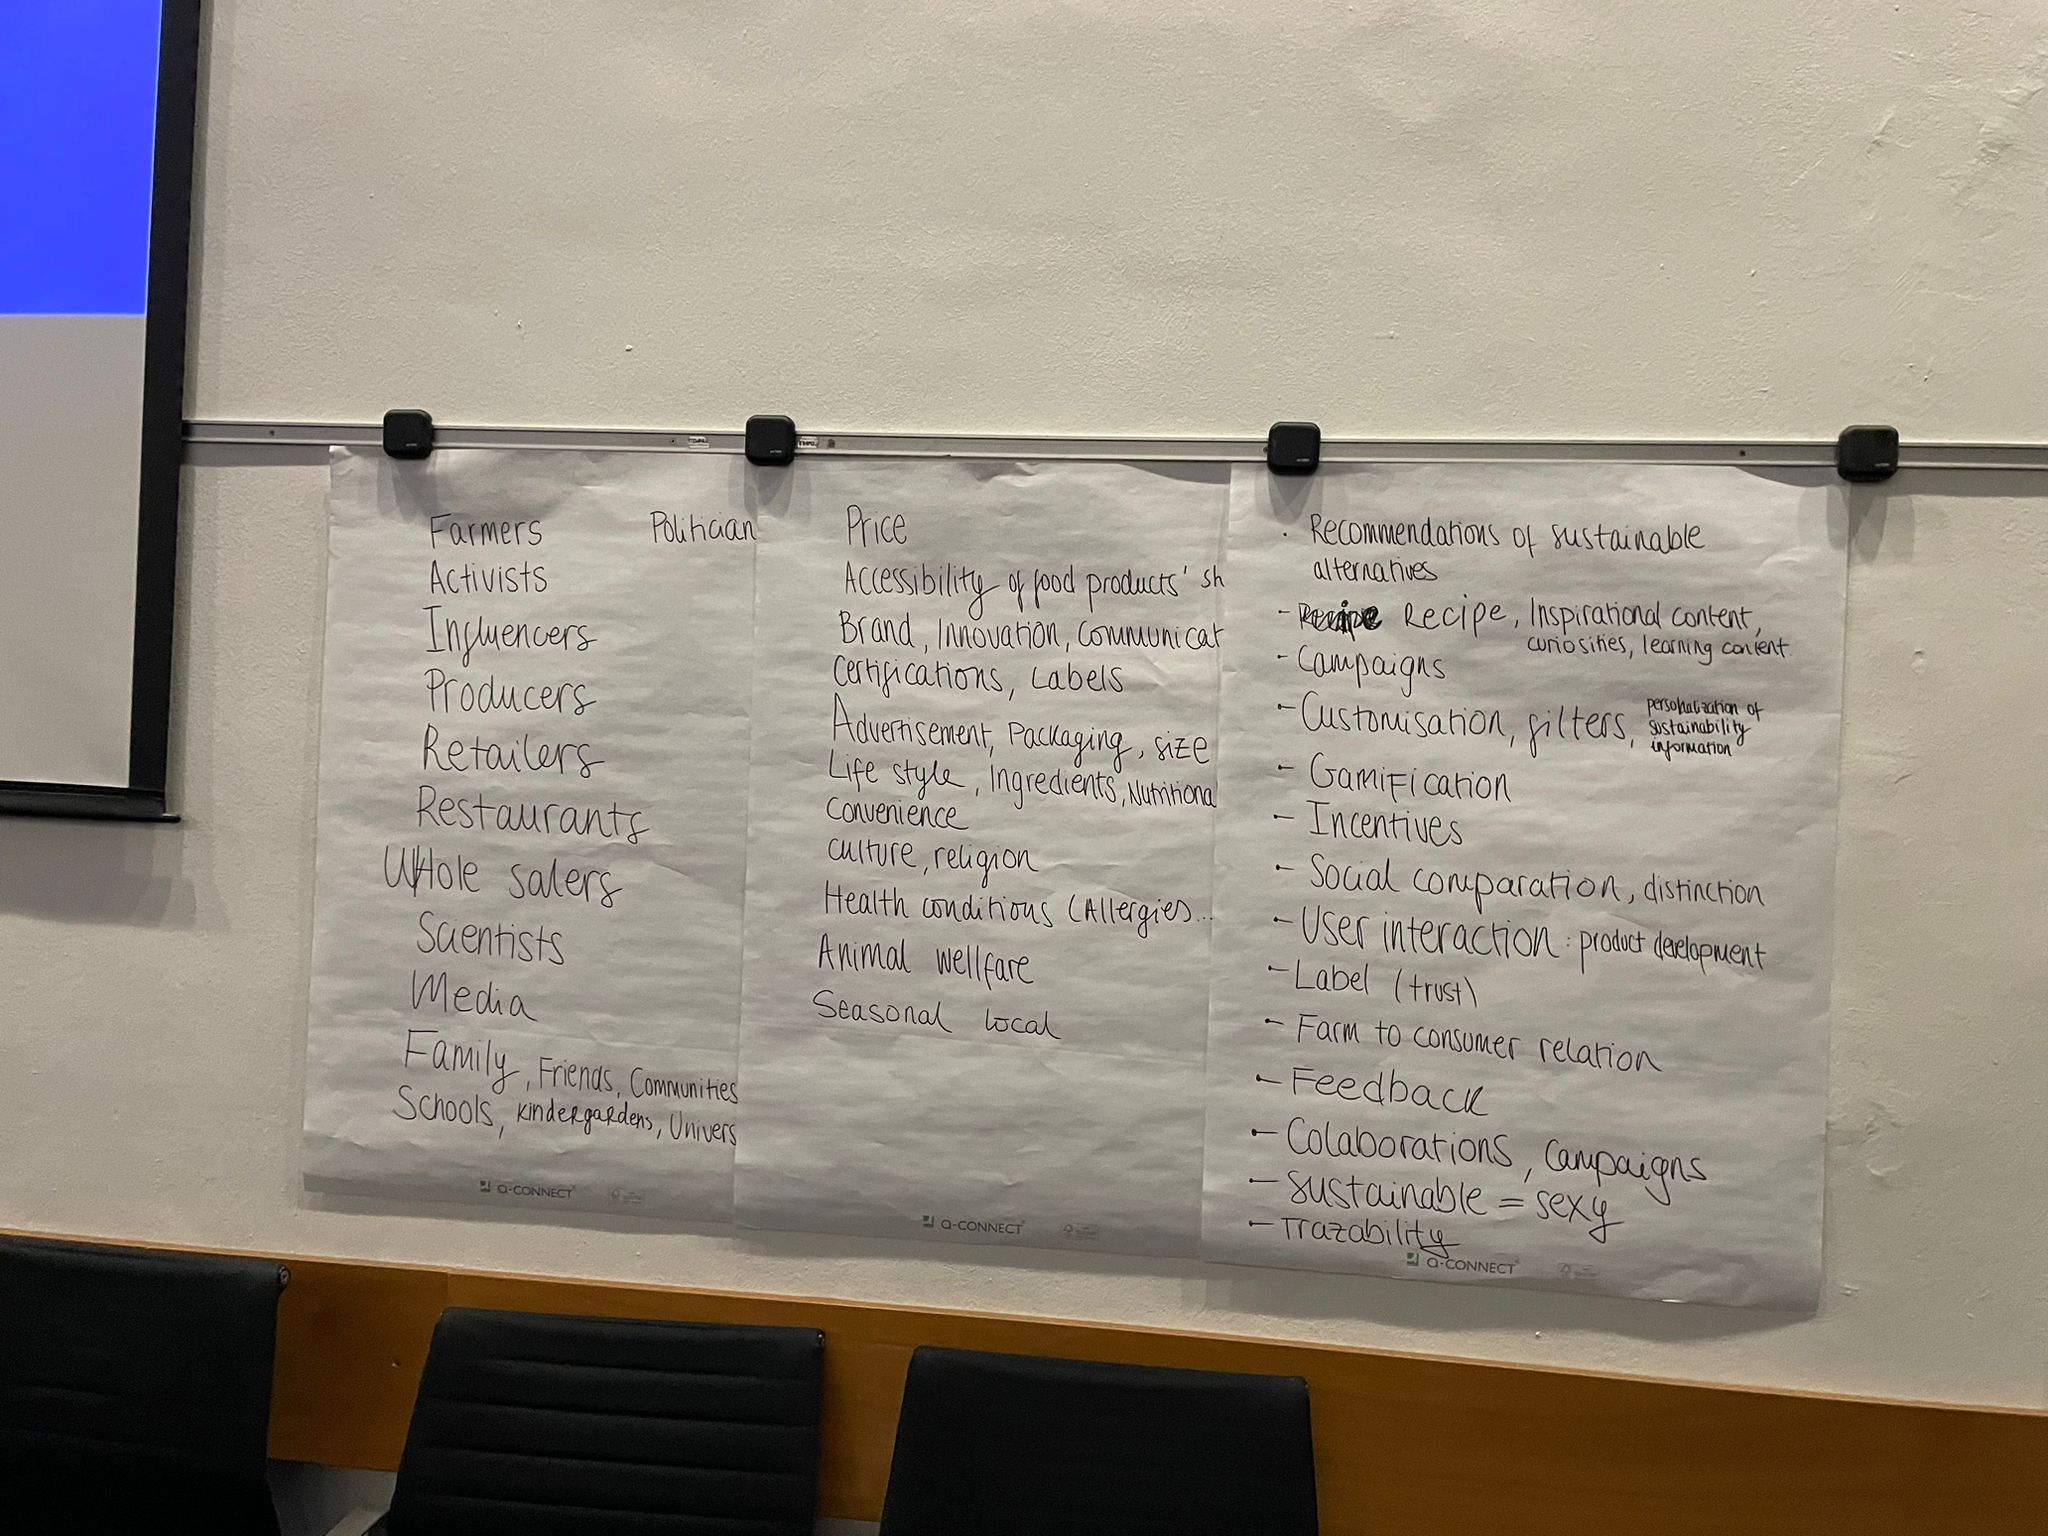 Farmers Politician
Activists
Influencers
Producers
Retailers
Restaurants
Whole salers
Scientists
Media
Family, Friends, Communities
Schools, kindergardens, Univers
Q-CONNECT
Price
Accessibility of food products' sh
Brand, Innovation, communicat
Certifications, Labels
Advertisement, Packaging, size
Life style, Ingredients, Nutritiona
Convenience
culture, religion
Health conditions (Allergies...
Animal wellfare
Seasonal local
Q-CONNECT
· Recommendations of sustainable
alternatives
- Recipe Recipe, Inspirational content,
curiosities, learning content.
- Campaigns
- Customisation, filters, personalization of
sustainability
information
- Gamification
- Incentives
- Social comparation, distinction
- User interaction: product development
- Label (trust)
- Farm to consumer relation
- Feedback
- Colaborations, campaigns
- sustainable = sexy
- Trazability
Q-CONNECT